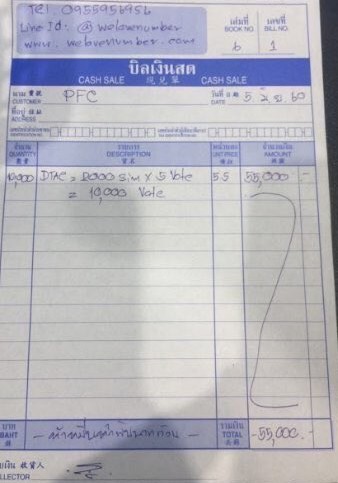 Tel 0955956956
Line Id: @welovenumber
www. welovenumber.com
เล่มที่ BOOK NO. 6
เลขที่ BILL NO. 1
บิลเงินสด
CASH SALE 現兌單 CASH SALE
นาม CUSTOMER PFC
วันที่ DATE 5 มิ.ย. 60
ที่อยู่ ADDRESS
จำนวน QUANTITY 數量 รายการ DESCRIPTION 貨名 หน่วยละ UNIT PRICE จำนวนเงิน AMOUNT
10,000 DTAC = 2000 Sim x 5 Vote 5.5 55,000 -
= 10,000 Vote
บาท BAHT - ห้าหมื่นห้าพันบาทถ้วน - รวมเงิน TOTAL -55,000. -
收貨人
COLLECTOR